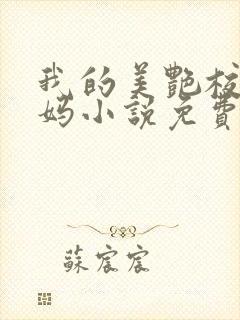 我的美艷校
媽小說免費
蘇宸宸